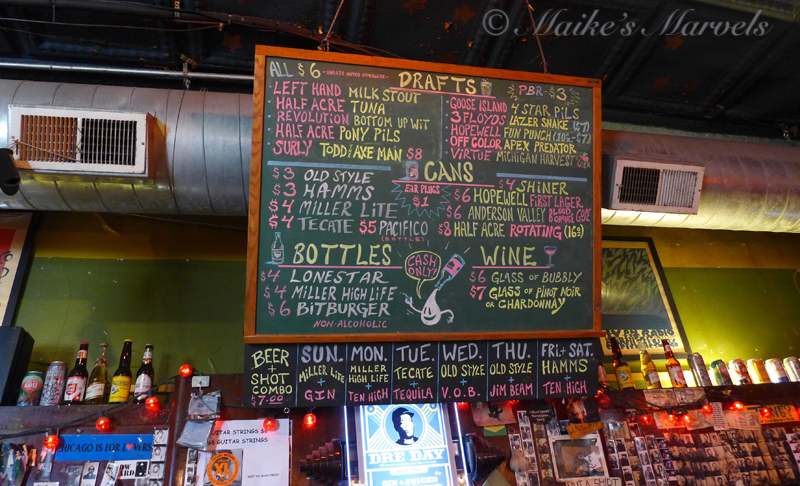 © Maike's Marvels
ALL $6 -UNLESS NOTED OTHERWISE-
DRAFTS
LEFT HAND MILK STOUT
HALF ACRE TUNA
REVOLUTION BOTTOM UP WIT
HALF ACRE PONY PILS
SURLY TODD THE AXE MAN $8
PBR-$3
GOOSE ISLAND 4 STAR PILS
3 FLOYDS LAZER SNAKE
HOPEWELL FUN PUNCH
OFF COLOR APEX PREDATOR
VIRTUE MICHIGAN HARVEST
CANS
$3 OLD STYLE
$3 HAMMS
$4 MILLER LITE
$4 TECATE $5 PACIFICO
(BOTTLE)
EAR PLUGS
$1
$4 SHINER
$6 HOPEWELL FIRST LAGER
$6 ANDERSON VALLEY BLOOD ORANGE GOSE
$8 HALF ACRE ROTATING (16oz)
BOTTLES
$4 LONESTAR
$4 MILLER HIGH LIFE
$6 BITBURGER
NON-ALCOHOLIC
CASH ONLY!
WINE
$6 GLASS OF BUBBLY
$7 GLASS OF PINOT NOIR
OR CHARDONNAY
BEER + SHOT COMBO $7.00
SUN. MILLER LITE + GIN
MON. MILLER HIGH LIFE + TEN HIGH
TUE. TECATE + TEQUILA
WED. OLD STYLE + V.O.B.
THU. OLD STYLE + JIM BEAM
FRI.+SAT. HAMMS + TEN HIGH
CHICAGO IS FOR LOVERS
GUITAR STRINGS
DRE DAY
GIN & JUICE